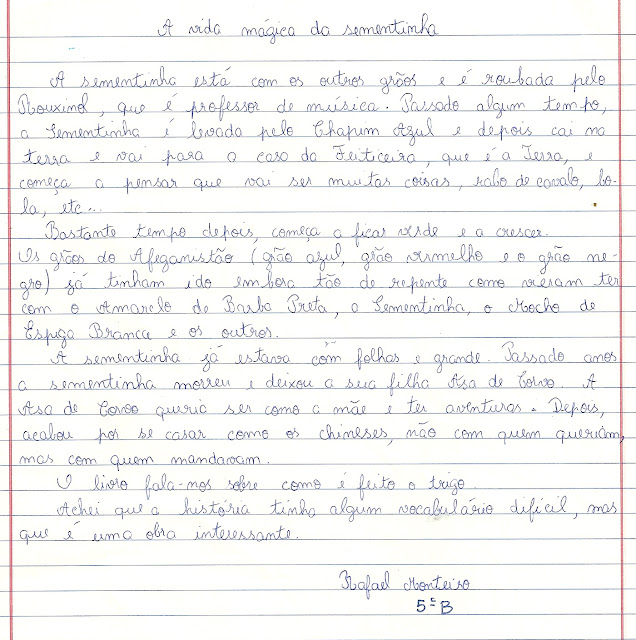 A vida mágica da sementinha
A sementinha está com os outros grãos e é roubada pelo
Rouxinol, que é professor de música. Passado algum tempo,
a Sementinha é levada pelo Chapim Azul e depois cai na
terra e vai para a casa da Feiticeira, que é a Terra, e
começa a pensar que vai ser muitas coisas, rabo de cavalo, bo-
la, etc...
Bastante tempo depois, começa a ficar verde e a crescer.
Os grãos do Afeganistão (grão azul, grão vermelho e o grão ne-
gro) já tinham ido embora tão de repente como vieram ter
com o Amarelo de Barba Preta, a Sementinha, o Mocho de
Espiga Branca e os outros.
A sementinha já estava com folhas e grande. Passado anos
a sementinha morreu e deixou a sua filha Asa de Corvo. A
Asa de Corvo queria ser como a mãe e ter aventuras. Depois,
acabou por se casar como os chineses, não com quem queriam,
mas com quem mandavam.
O livro fala-nos sobre como é feito o trigo.
Achei que a história tinha algum vocabulário difícil, mas
que é uma obra interessante.
Rafael Monteiro
5º B